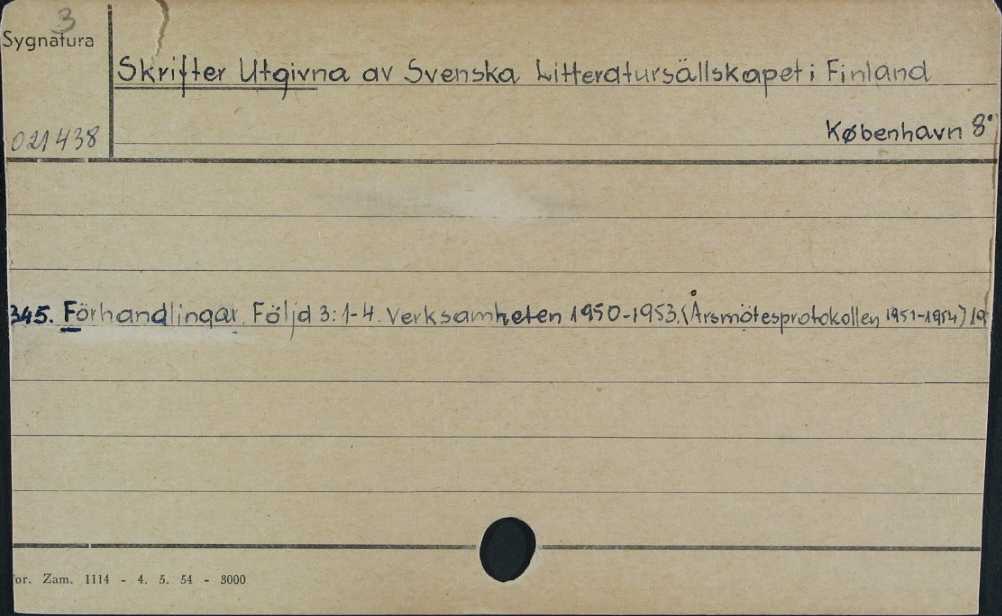 3
Sygnatura
Skrifter Utgivna av Svenska Litteratursällskapet i Finland
021438
København 8°
345. Förhandlingar. Följd 3:1-4. Verksamheten 1950-1953. (Årsmötesprotokollen 1951-1954) 19
or. Zam. 1114 - 4. 5. 54 - 3000